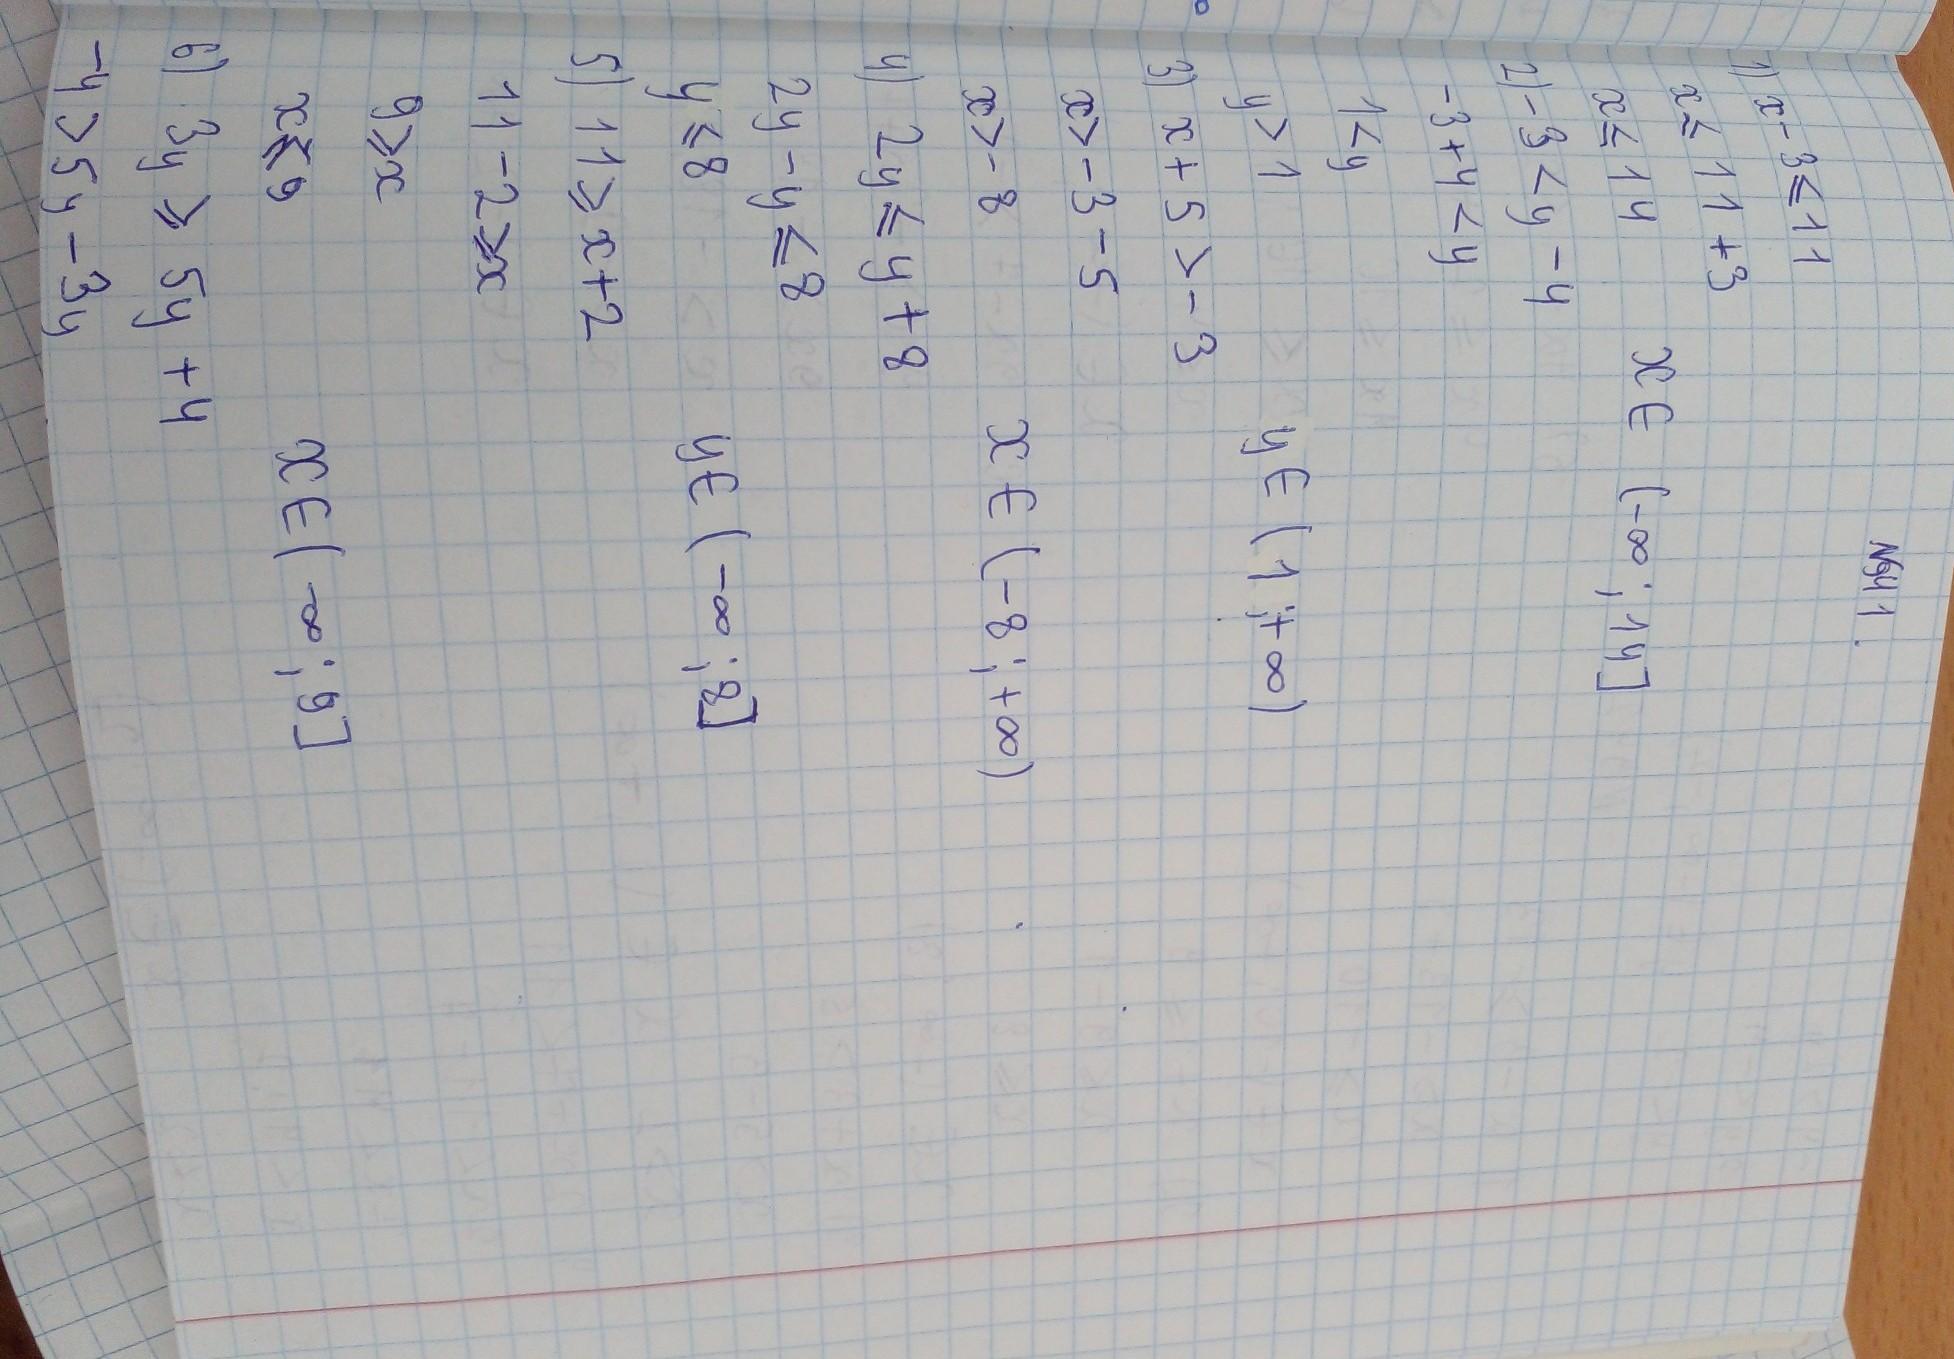 №41.
1) x-3≤11
x≤ 11+3
x≤14 x∈ (-∞; 14]
2) -3<y-4
-3+4<y
1<y
y>1 y∈ (1;+∞)
3) x+5>-3
x>-3-5
x>-8 x∈ (-8;+∞)
4) 2y≤y+8
2y-y≤8
y≤8 y∈ (-∞;8]
5) 11≥x+2
11-2≥x
9≥x
x≤9 x∈ (-∞;9]
6) 3y≥5y+4
-4>5y-3y